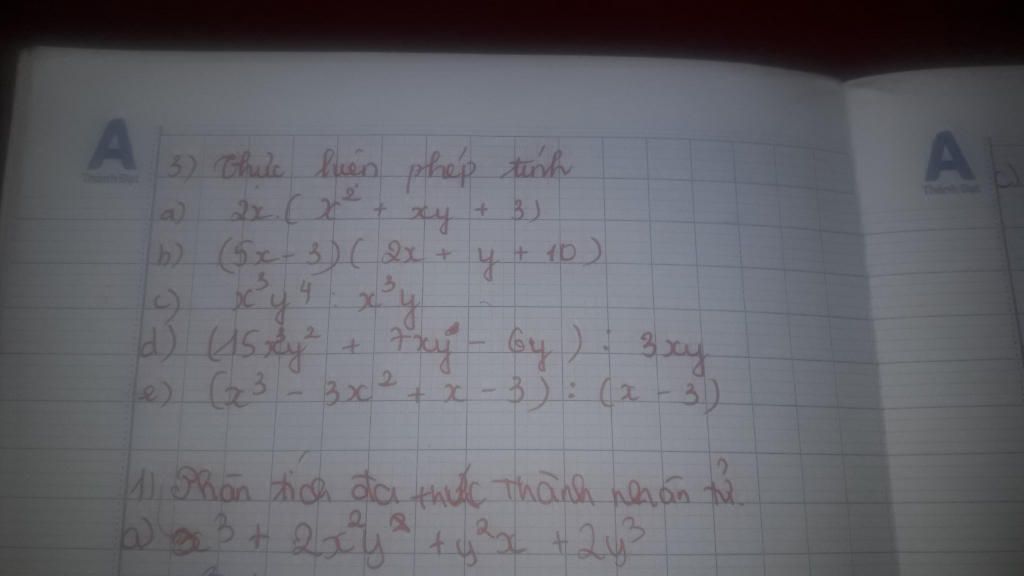 A
Thành Đạt
3) Thực luện phép tính
a) 2x.( x² + xy + 3)
b) (5x - 3)( 2x + y + 10 )
c) x³y⁴ : x³y
d) (15x³y² + 7xy - 6y ) : 3xy
e) (x³ - 3x² + x - 3) : (x - 3)
1) Phân tích đa thức thành nhân tử.
a) x³ + 2x²y + y²x + 2y³
A
Thành Đạt
c)